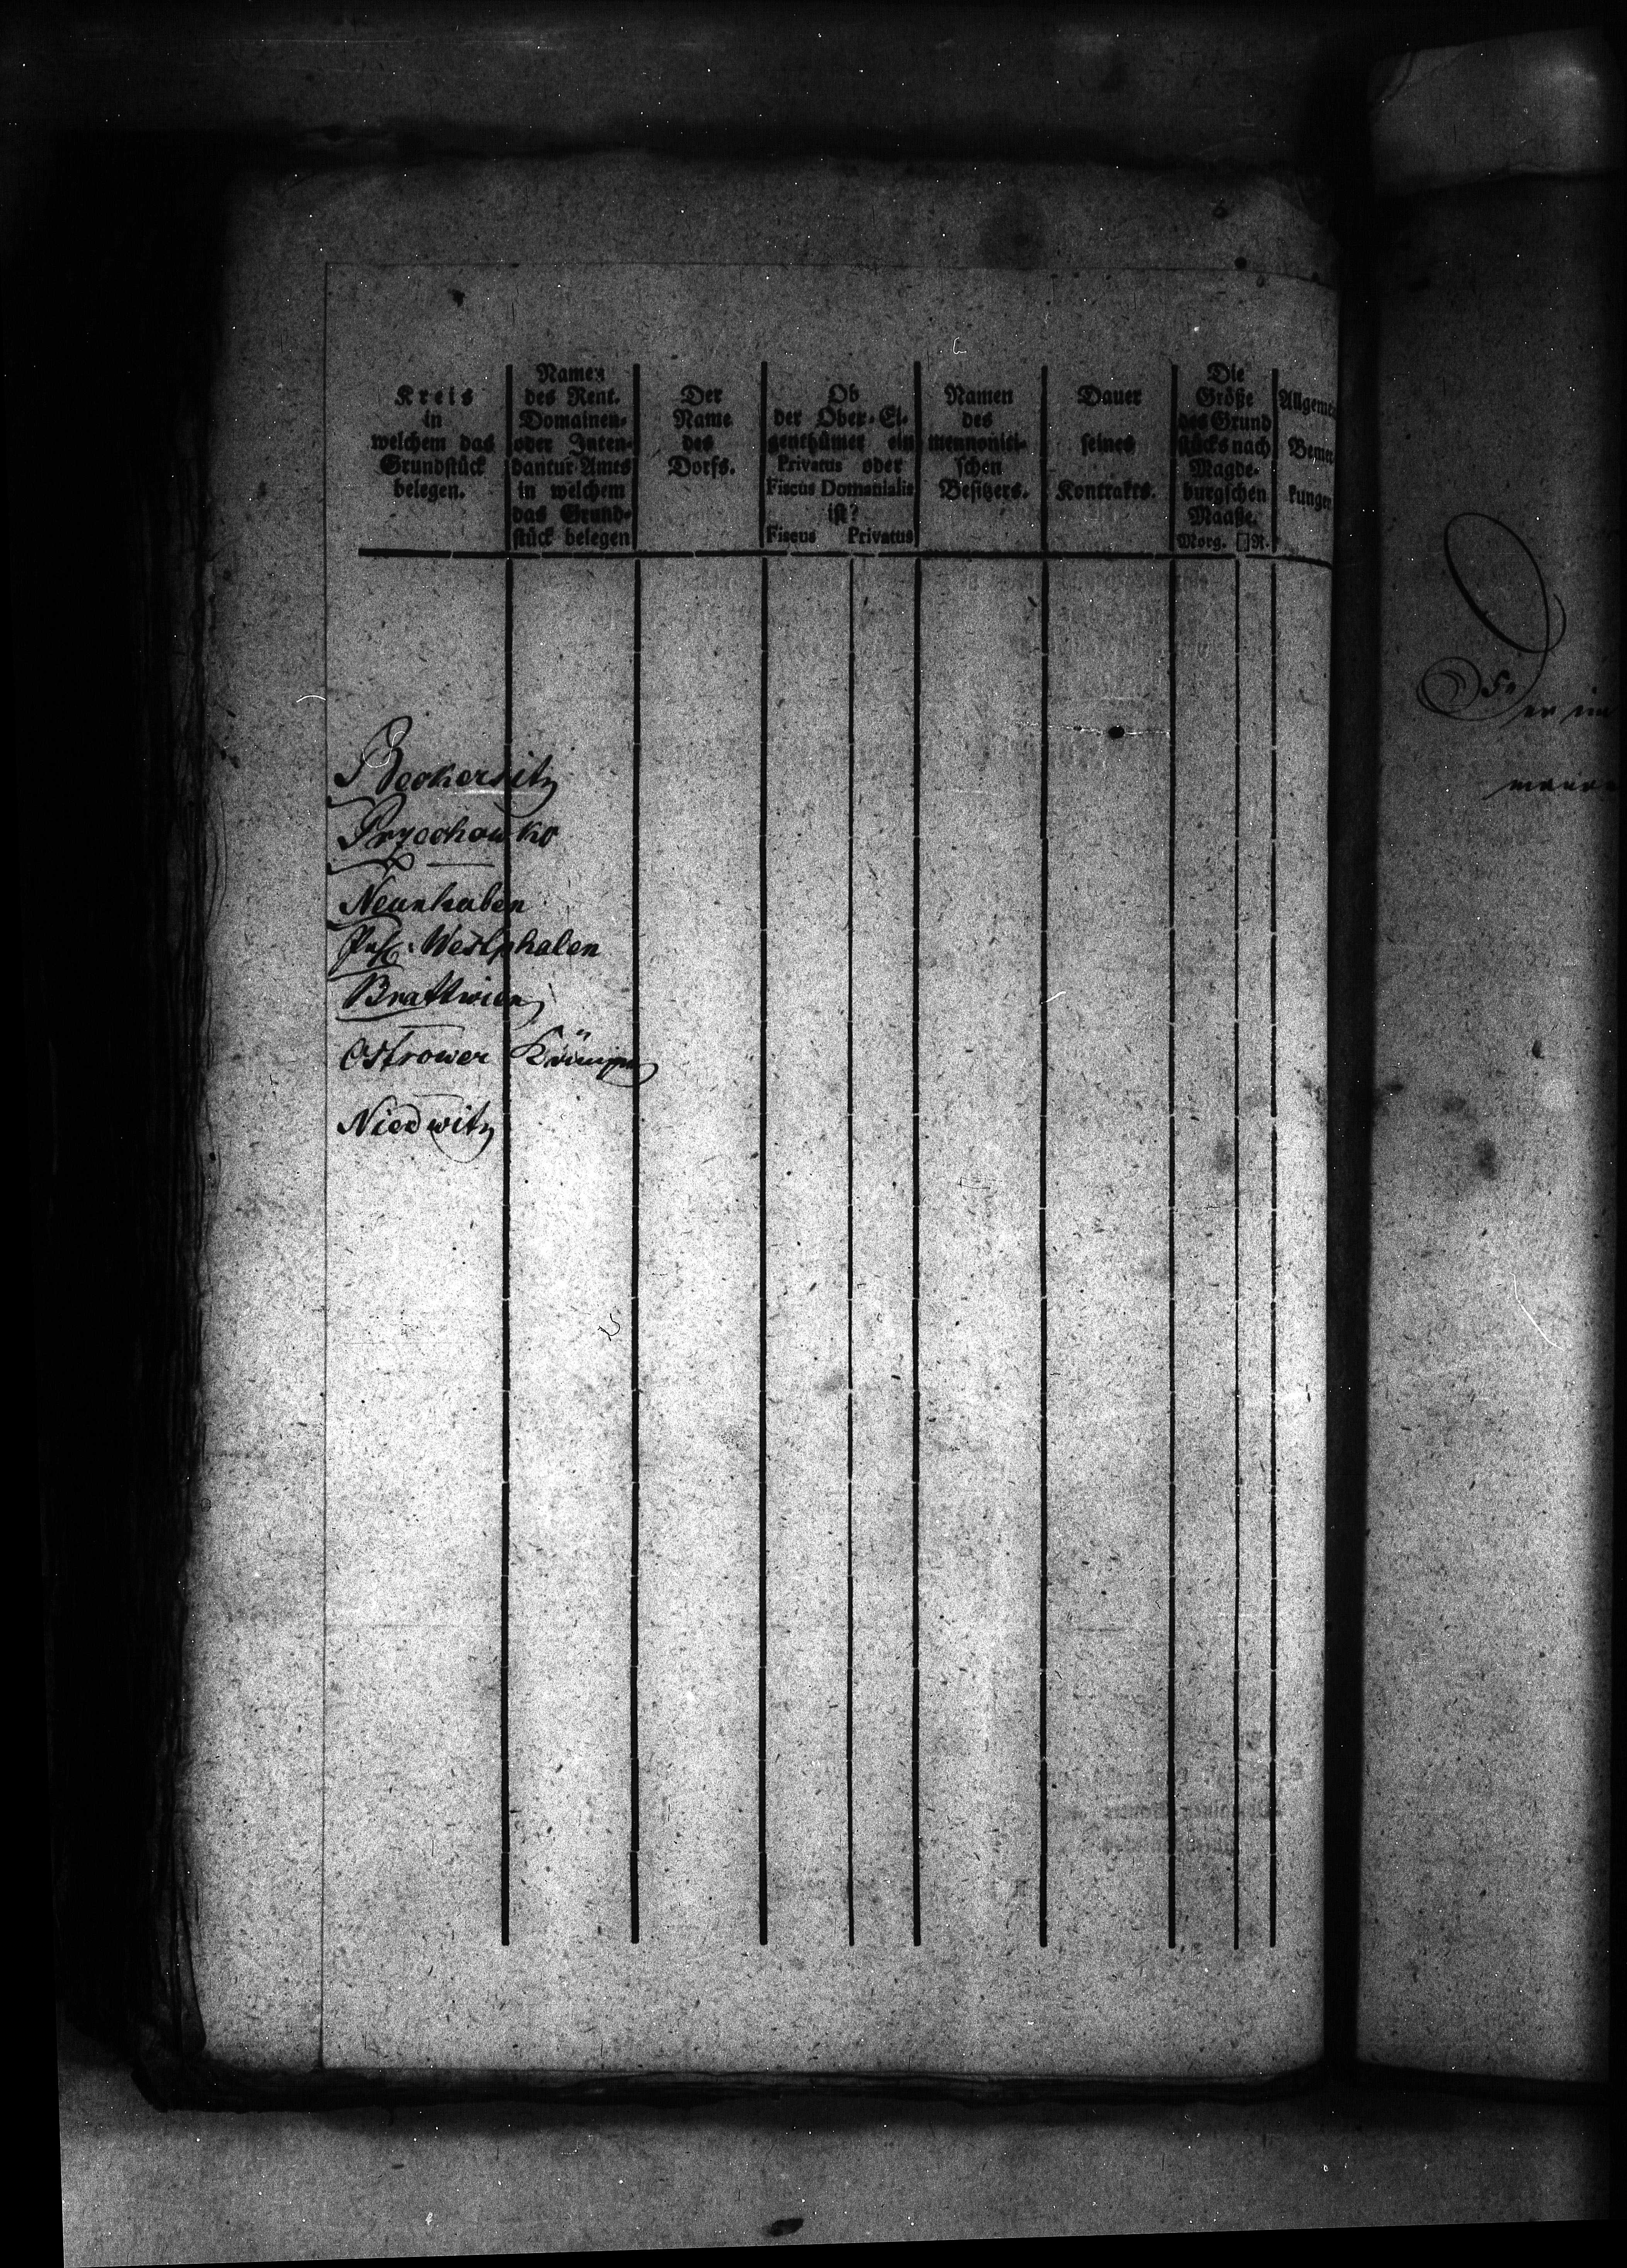 Kreis
in
welchem das
Grundstück
belegen.
Namen
des Rent-
Domainen-
oder Inten-
dantur-Amts
in welchem
das Grund-
stück belegen
Der
Name
des
Dorfs.
Ob
der Ober-Ei-
genthümer ein
Privatus oder
Fiscus Domanialis
ist?
Fiscus Privatus
Namen
des
mennoniti-
schen
Besitzers.
Dauer
seines
Kontrakts.
Die
Größe
des Grund
stücks nach
Magde-
burgschen
Maaße.
Morg. □R.
Allgemei
Bemer
kungen
Beckersitz
Prycchowko
Neunhuben
Westphalen
Brattwien
Ostrower Kämpe
Niedwitz